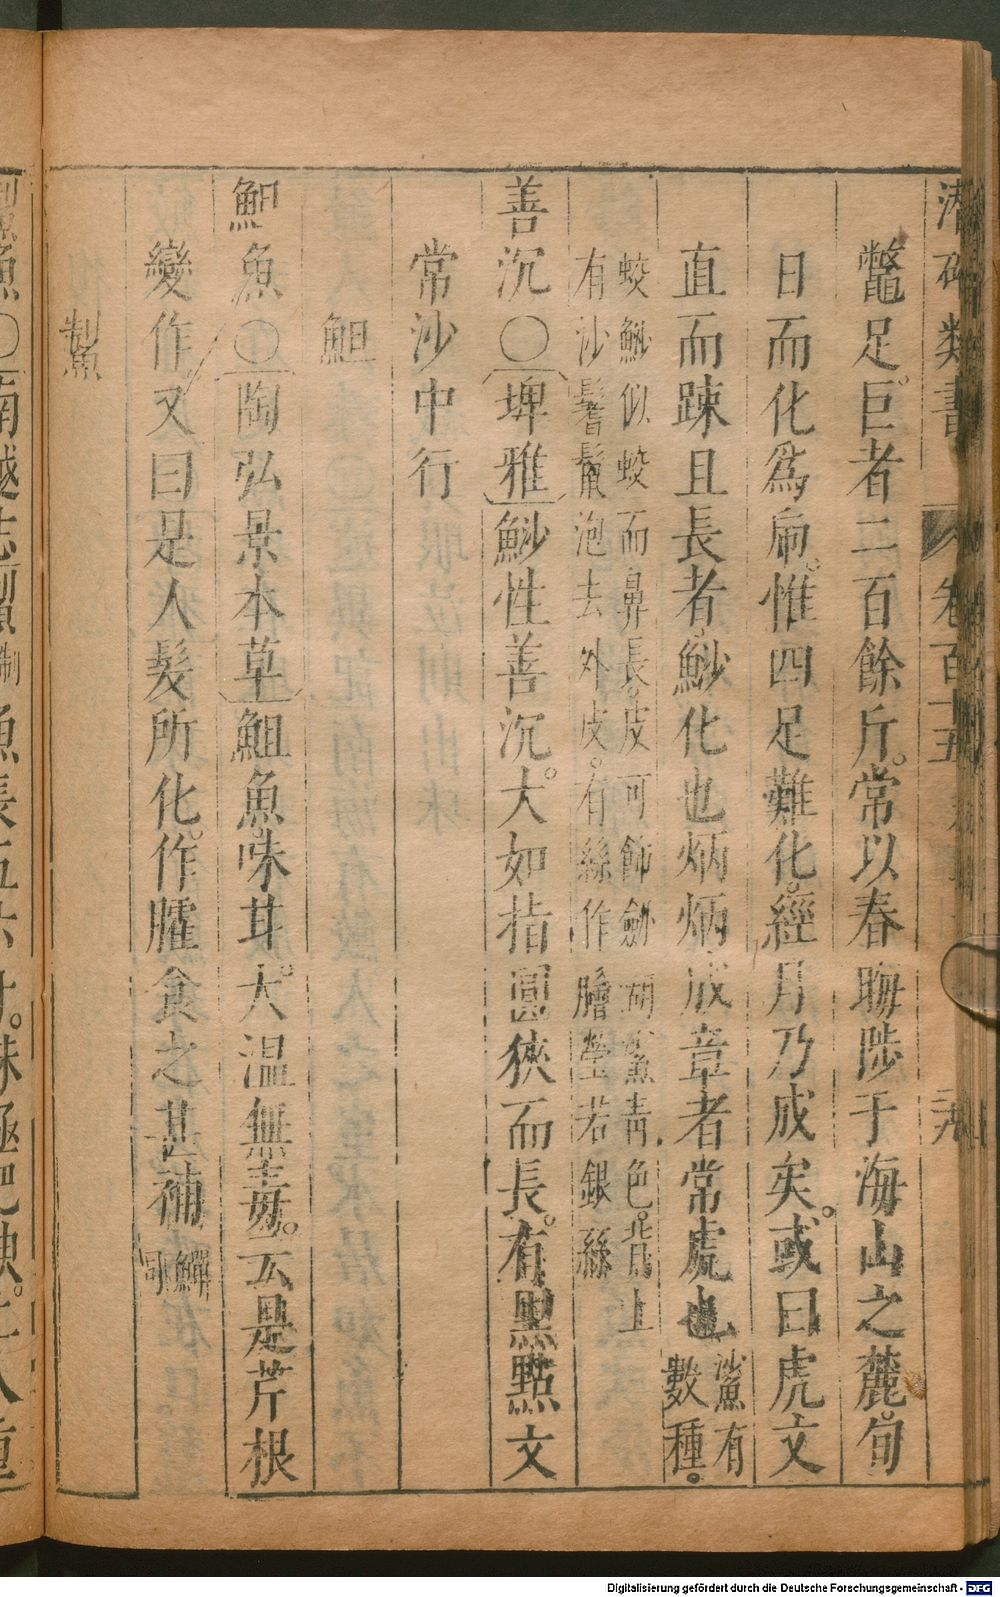 潜確類書 卷百十五 二九
鼈足巨者二百餘斤。常以春晦陟于海山之麓。旬
日而化爲虎。惟四足難化。經月乃成矣。或曰虎文
直而踈且長者鯋化也炳炳成章者常處也鯊有數種。
蛟鯋似蛟而鼻長。皮可飾劒 胡鯊青色。背上
有沙鬐鬛泡去外皮。有絲作膾瑩若銀絲
善沉〇埤雅鯋性善沉。大如指圓狹而長。有黑點文
常沙中行
䱇
䱇魚〇陶弘景本草䱇魚。味甘。大温無毒。云是芹根
變作又曰是人髮所化。作臛食之甚補
䱇同鱓
鯯
魚〇南越志
魚長五六寸。味極肥
Digitalisierung gefördert durch die Deutsche Forschungsgemeinschaft - DFG